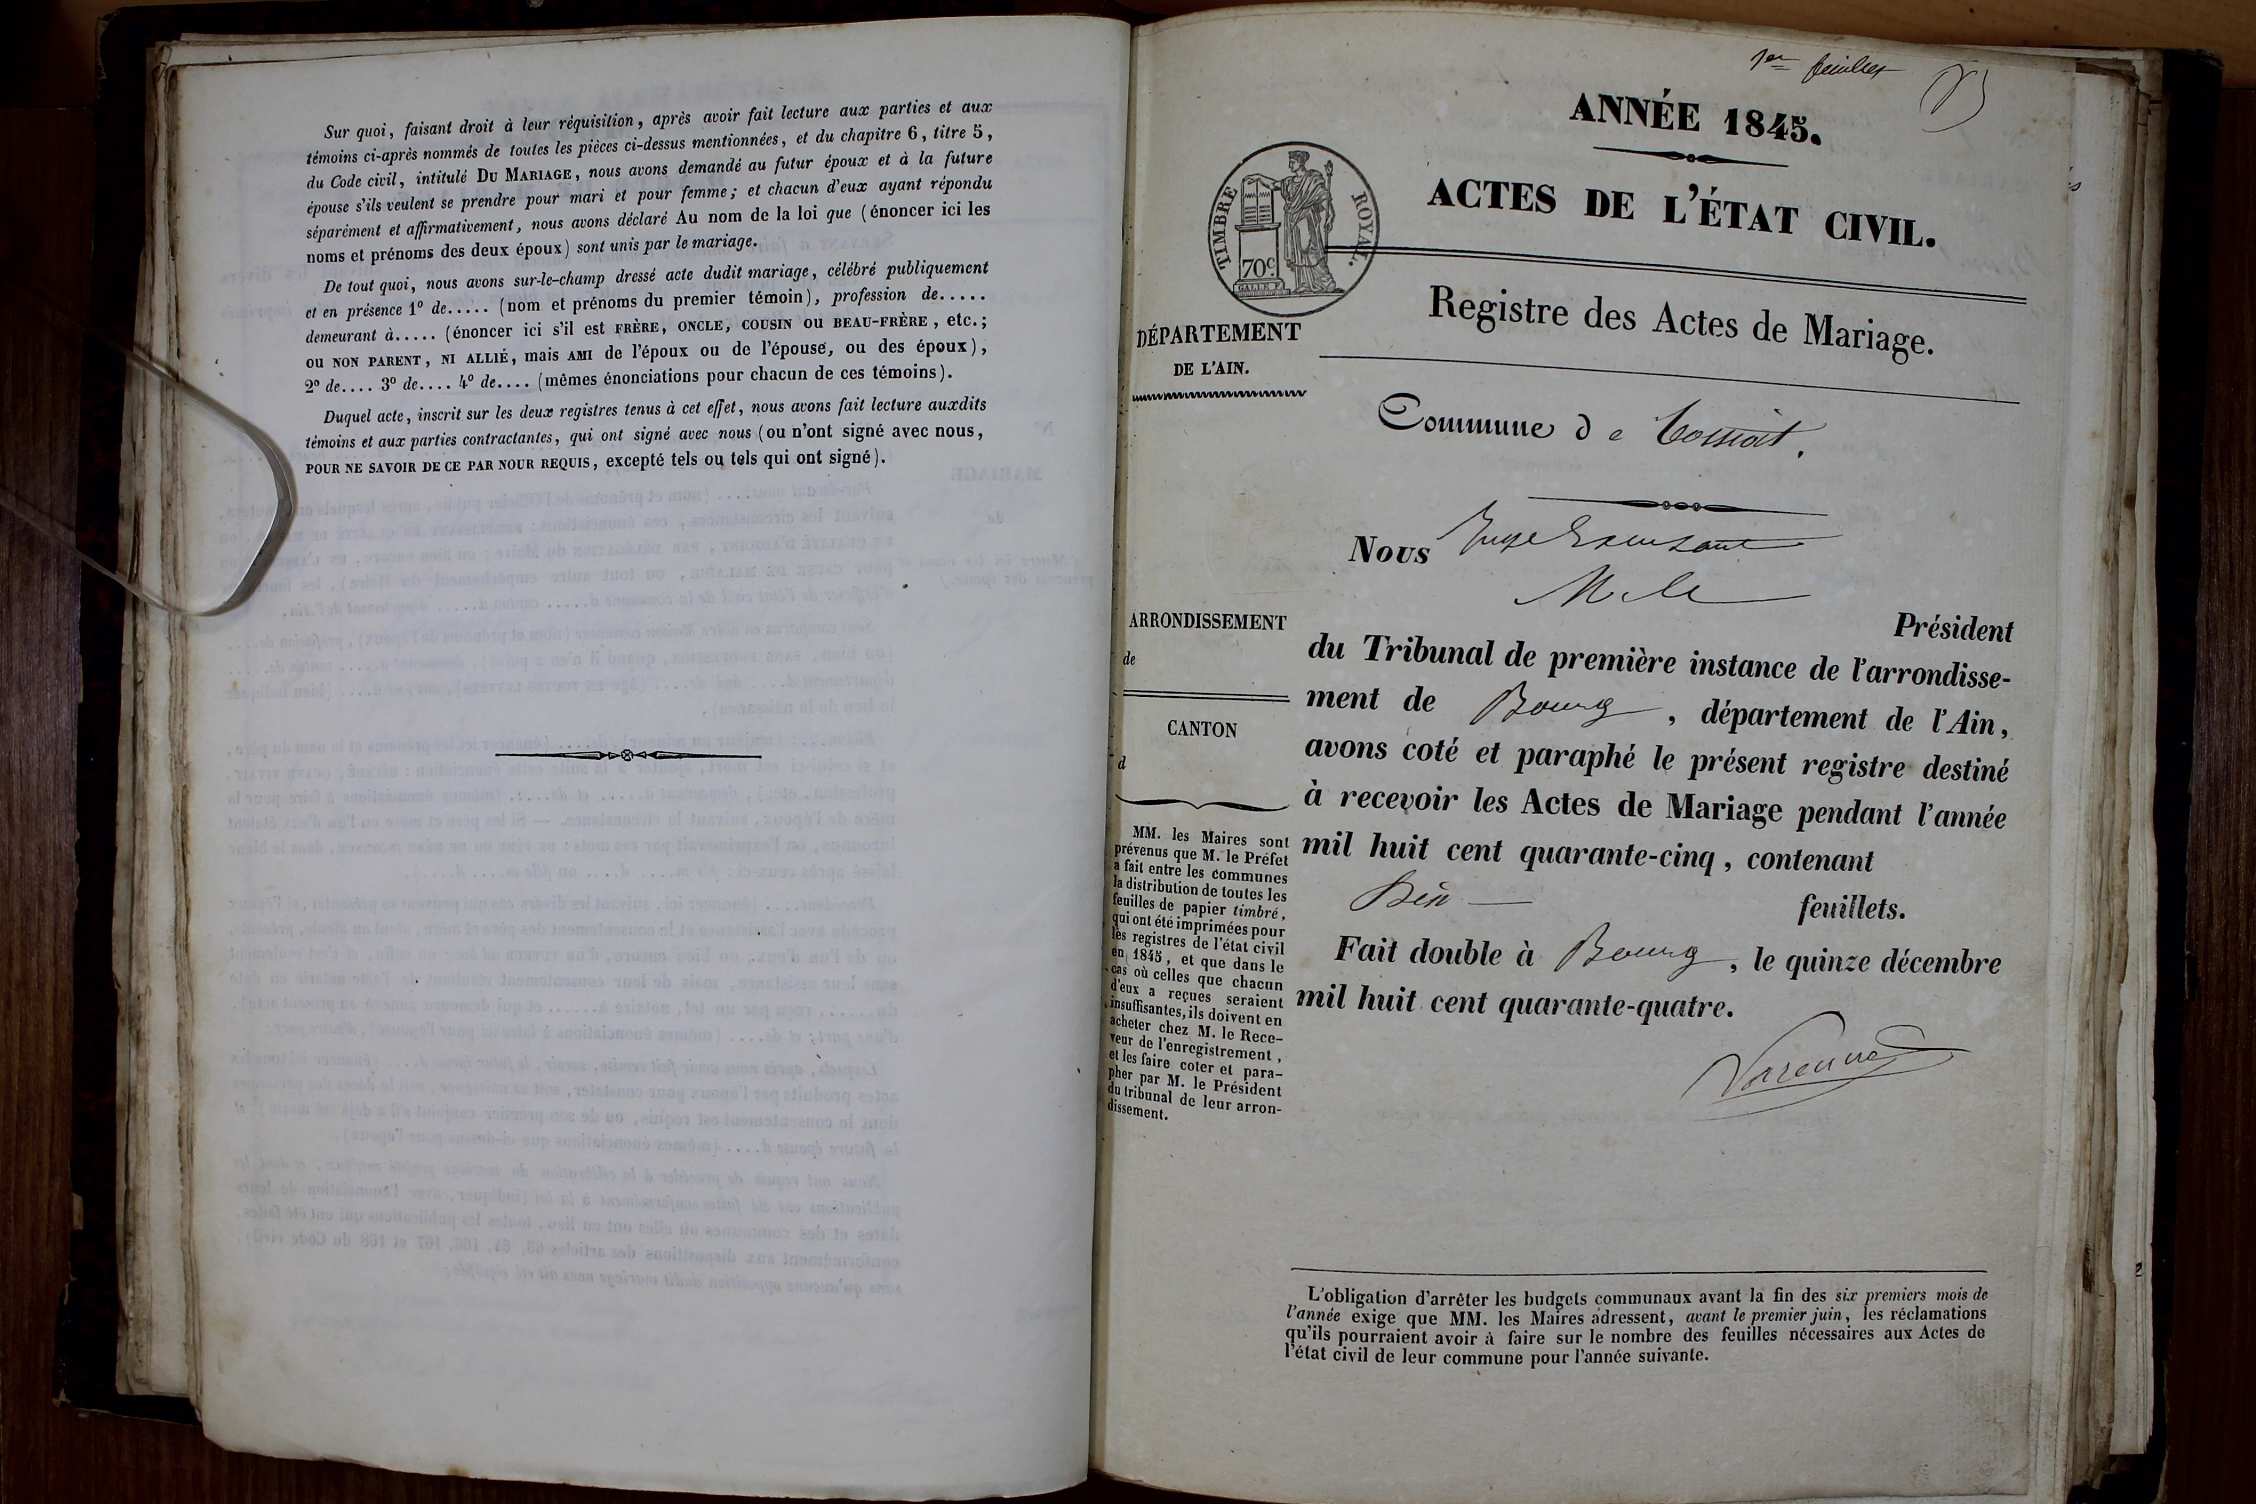 Sur quoi, faisant droit à leur réquisition, après avoir fait lecture aux parties et aux
témoins ci-après nommés de toutes les pièces ci-dessus mentionnées, et du chapitre 6, titre 5,
du Code civil, intitulé DU MARIAGE, nous avons demandé au futur époux et à la future
épouse s'ils veulent se prendre pour mari et pour femme; et chacun d'eux ayant répondu
séparément et affirmativement, nous avons déclaré Au nom de la loi que (énoncer ici les
noms et prénoms des deux époux) sont unis par le mariage.
De tout quoi, nous avons sur-le-champ dressé acte dudit mariage, célébré publiquement
et en présence 1° de..... (nom et prénoms du premier témoin), profession de.....
demeurant à..... (énoncer ici s'il est FRÈRE, ONCLE, COUSIN ou BEAU-FRÈRE, etc.;
ou NON PARENT, NI ALLIÉ, mais AMI de l'époux ou de l'épouse, ou des époux),
2° de.... 3° de.... 4° de.... (mêmes énonciations pour chacun de ces témoins).
Duquel acte, inscrit sur les deux registres tenus à cet effet, nous avons fait lecture auxdits
témoins et aux parties contractantes, qui ont signé avec nous (ou n'ont signé avec nous,
POUR NE SAVOIR DE CE PAR NOUR REQUIS, excepté tels ou tels qui ont signé).
1er feuillet
ANNÉE 1845.
TIMBRE ROYAL.
70c.
ACTES DE L'ÉTAT CIVIL.
Registre des Actes de Mariage.
DÉPARTEMENT
DE L'AIN.
Commune de Tossiat.
Nous Juge
Président
ARRONDISSEMENT
de
CANTON
d
du Tribunal de première instance de l'arrondisse-
ment de Bourg, département de l'Ain,
avons coté et paraphé le présent registre destiné
à recevoir les Actes de Mariage pendant l'année
mil huit cent quarante-cinq, contenant
feuillets.
Fait double à Bourg, le quinze décembre
mil huit cent quarante-quatre.
Varenne
MM. les Maires sont
prévenus que M. le Préfet
a fait entre les communes
la distribution de toutes les
feuilles de papier timbré,
qui ont été imprimées pour
les registres de l'état civil
en 1845, et que dans le
cas où celles que chacun
d'eux a reçues seraient
insuffisantes, ils doivent en
acheter chez M. le Rece-
veur de l'enregistrement,
et les faire coter et para-
pher par M. le Président
du tribunal de leur arron-
dissement.
L'obligation d'arrêter les budgets communaux avant la fin des six premiers mois de
l'année exige que MM. les Maires adressent, avant le premier juin, les réclamations
qu'ils pourraient avoir à faire sur le nombre des feuilles nécessaires aux Actes de
l'état civil de leur commune pour l'année suivante.